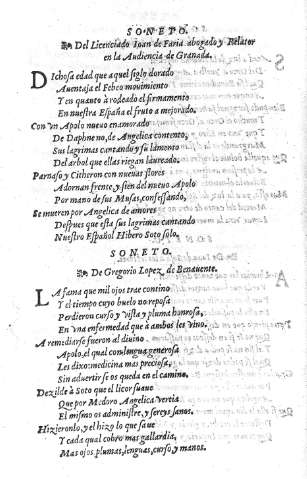 SONETO.
Del Licenciado Ioan de Faria abogado y Relator
en la Audiencia de Granada.
Dichosa edad que aquel siglo dorado
Auentaja el Febeo mouimiento
Y en quanto à rodeado el firmamento
En nuestra España el fruto a mejorado.
Con vn Apolo nueuo enamorado
De Daphne no, de Angelica contento,
Sus lagrimas cantando y su lamento
Del arbol que ellas riegan laureado.
Parnaso y Citheron con nueuas flores
Adornan frente, y sien del nueuo Apolo
Por mano de sus Musas, confessando,
Se mueren por Angelica de amores
Despues que esta sus lagrimas cantando
Nuestro Español Hibero Soto solo.
SONETO.
De Gregorio Lopez, de Benauente.
La fama que mil ojos trae contino
Y el tiempo cuyo buelo no reposa
Perdieron curso y vista y pluma honrosa,
En vna enfermedad que à ambos les vino.
A remediarse fueron al diuino
Apolo, el qual con lengua generosa
Les dixo: medicina mas preciosa,
Sin aduertir se os queda en el camino.
Dezilde à Soto que el licor suaue
Que por Medoro Angelica vertia
El mismo os administre, y sereys sanos.
Hizieronlo, y el hizo lo que saue
Y cada qual cobro mas gallardia,
Mas ojos, plumas, lenguas, curso, y manos.